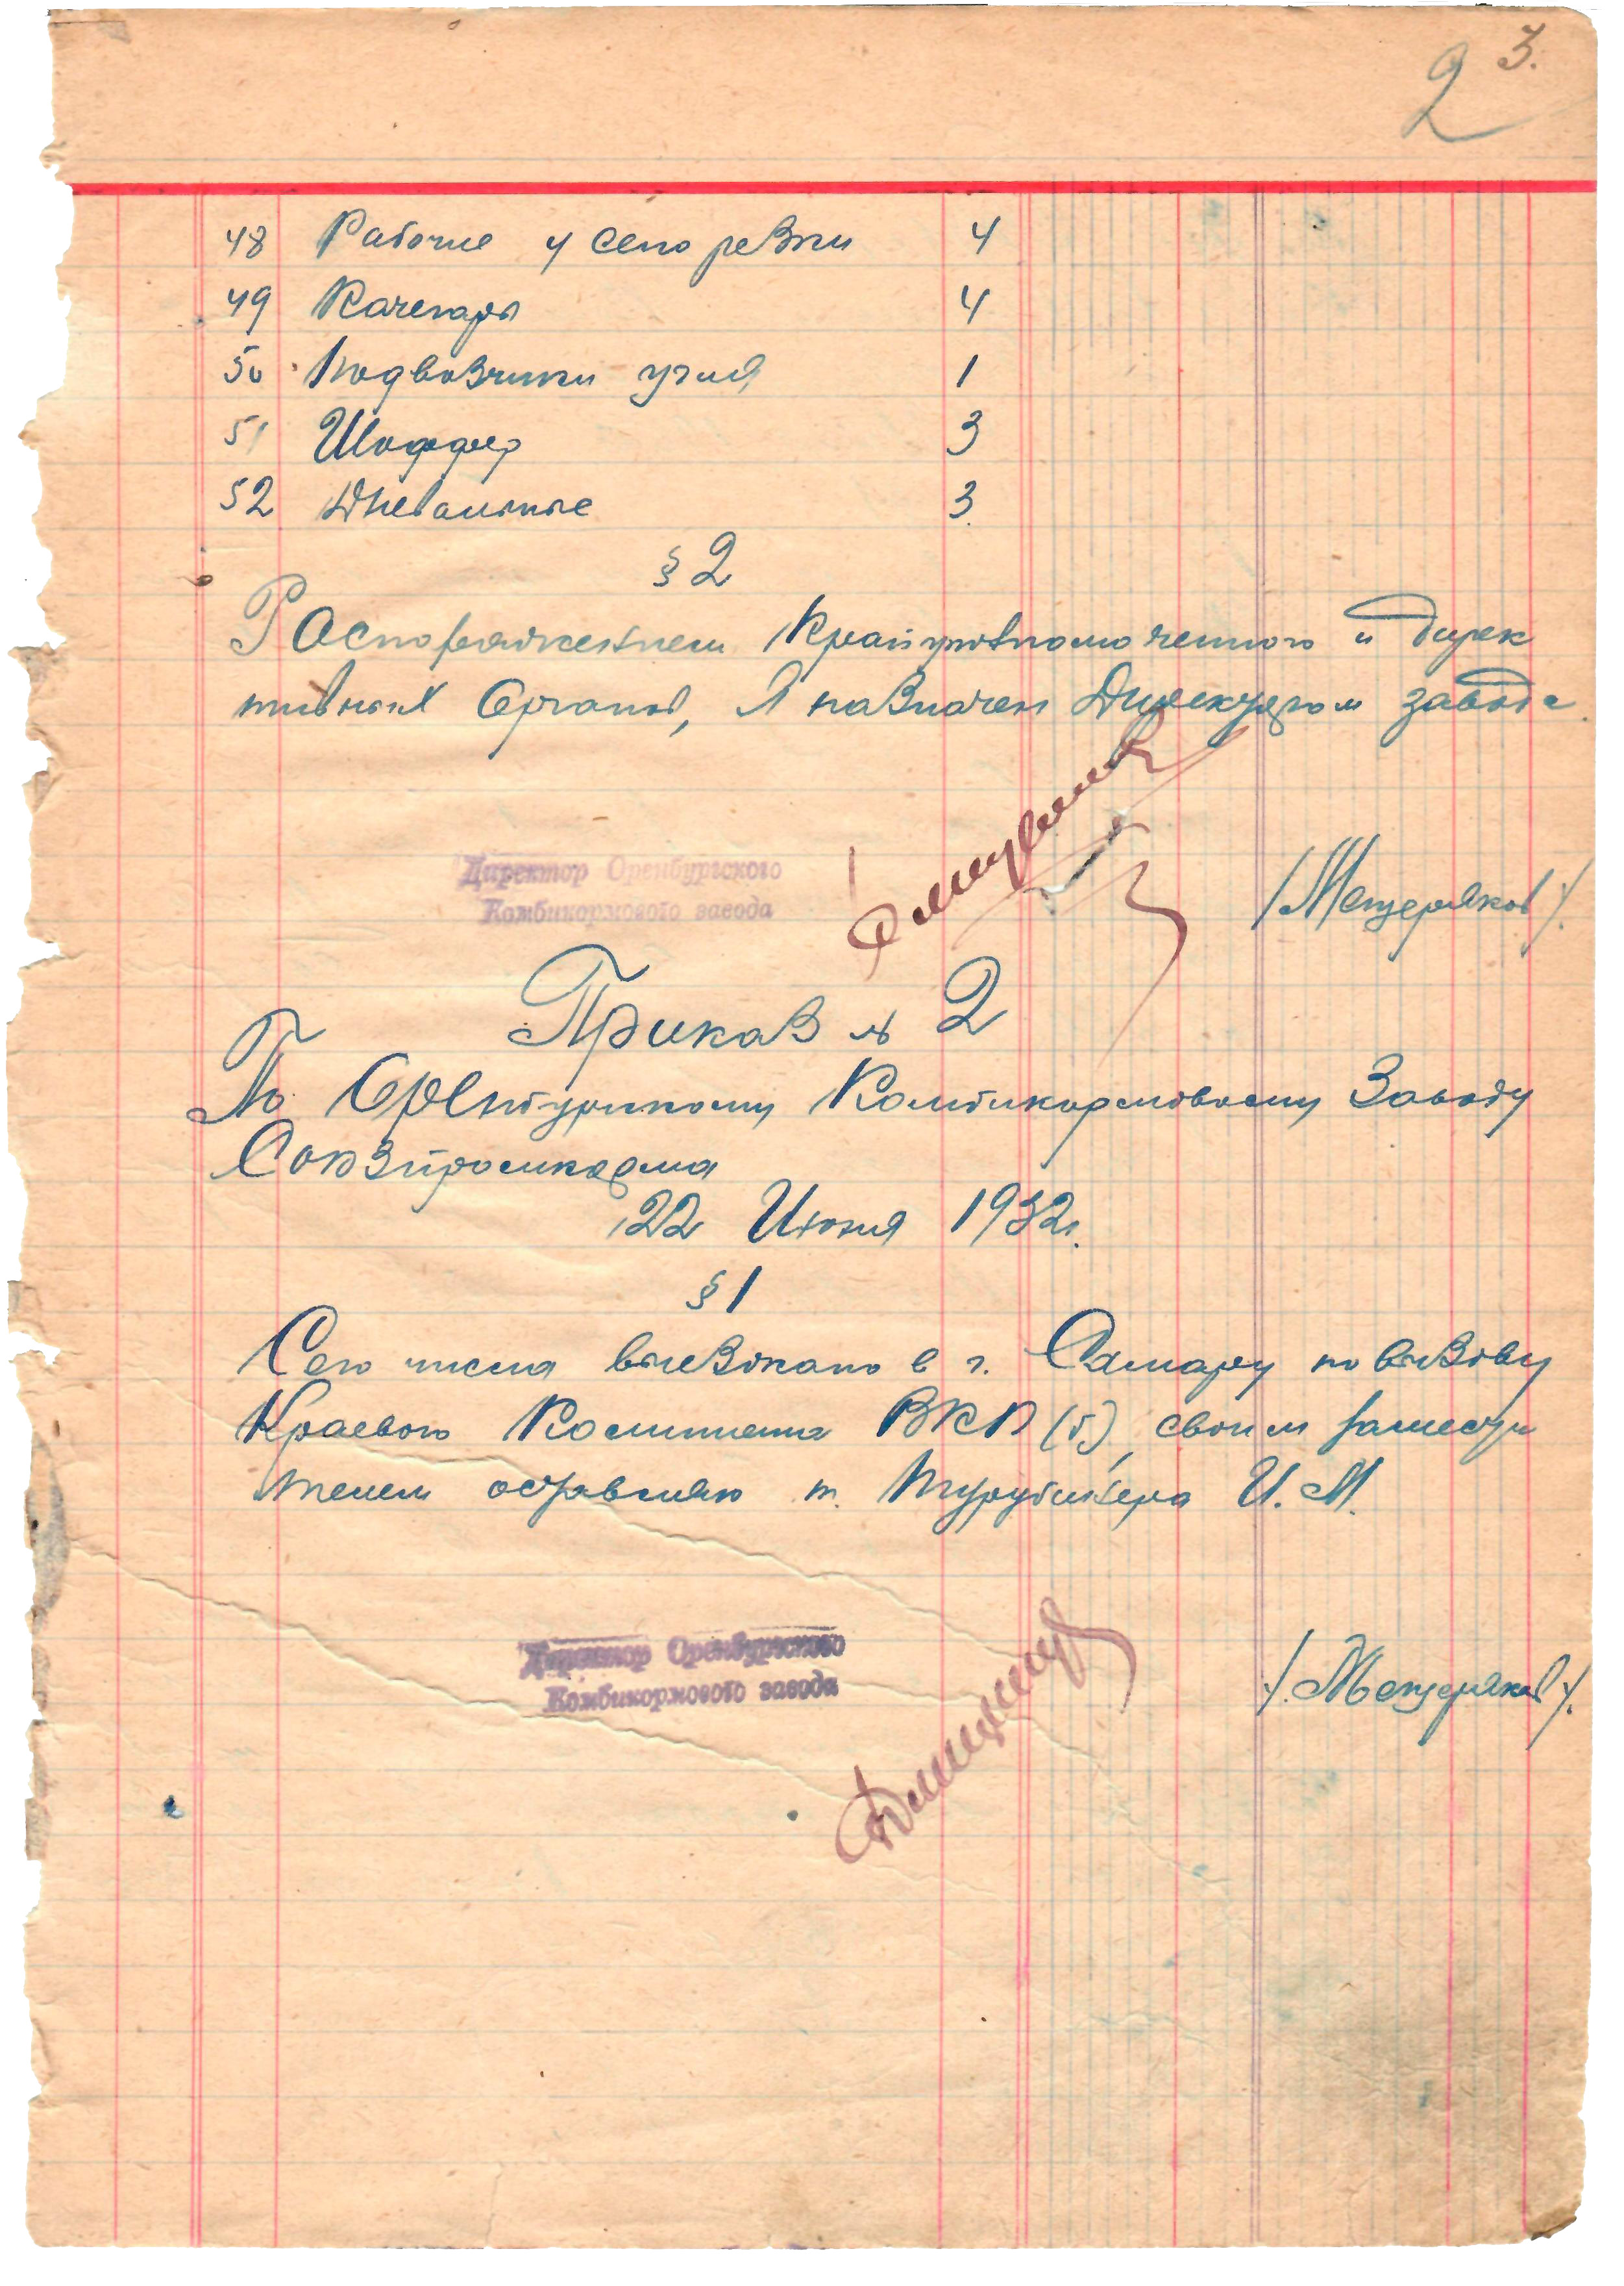 3.
2
48 Рабочие у сено резки 4
49 Качегары 4
50 Подвозчики угля 1
51 Шоффер 3
52 Дневальные 3
§ 2
Распоряжением Крайуполномоченного и дирек
тивных Органов, Я назначен Директором завода
Директор Оренбургского
Комбикормового завода
/Мещеряков/.
Приказ № 2
По Оренбургскому Комбикормовому Заводу
Союзпромкорма
22 Июня 1932г.
§ 1
Сего числа выезжаю в г. Самару по вызову
Краевого Комитета ВКП(б), своим замести
телем оставляю т. И. М.
Директор Оренбургского
Комбикормового завода
/.Мещеряков/.